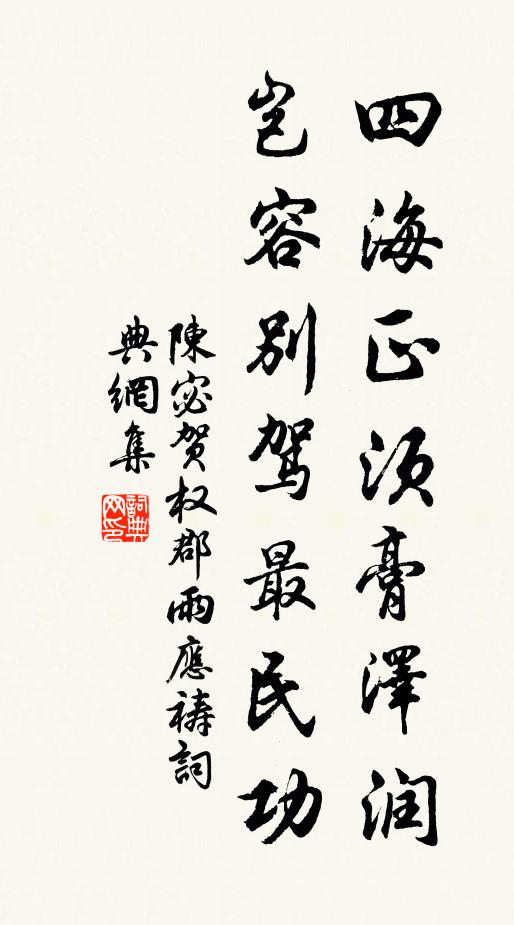 四海正須膏澤润
岂容别駕最民功
陳宓贺权郡雨應禱詞
典網集
詞典网印